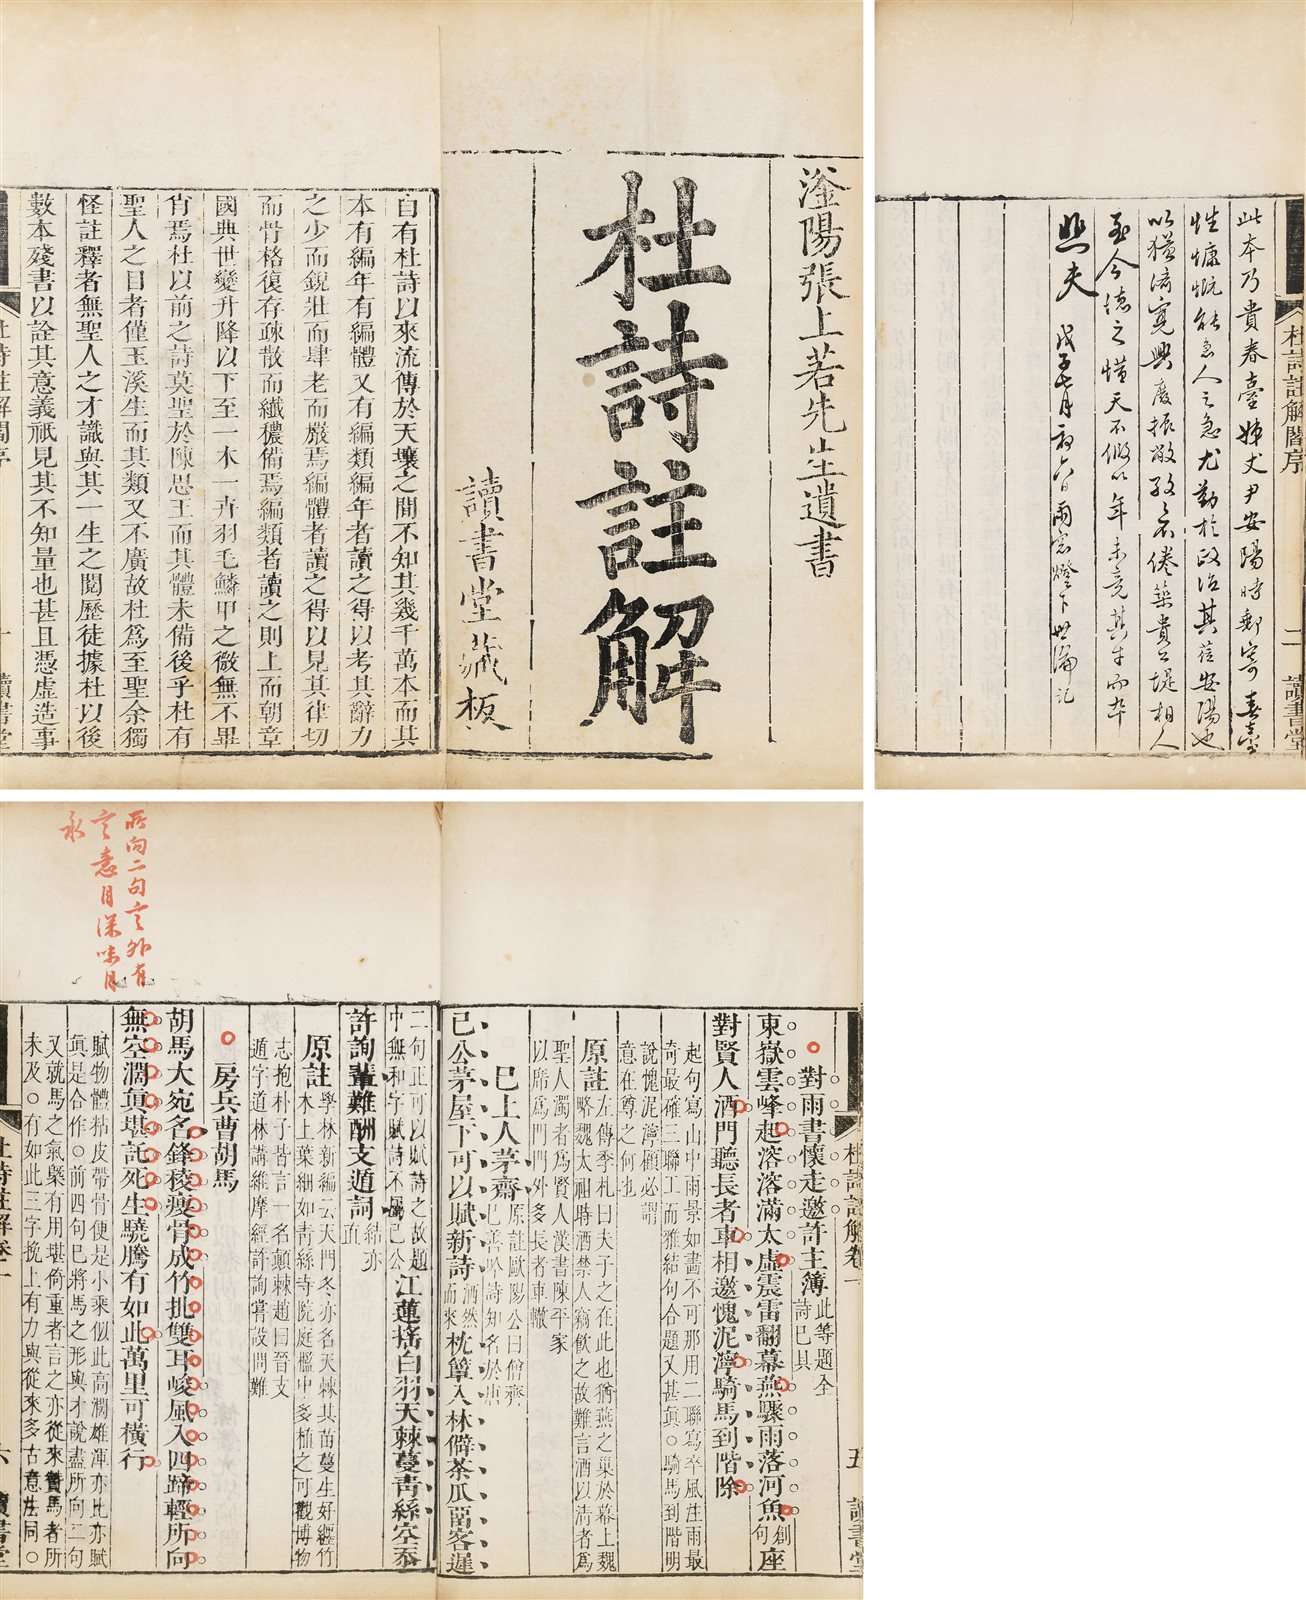 滏陽張上若先生遺書
杜詩註解
讀書堂藏板
自有杜詩以來流傳於天壤之間不知其幾千萬本而其
本有編年有編體又有編類編年者讀之得以考其辭力
之少而銳壯而肆老而嚴焉編體者讀之得以見其律切
而骨格復存疎散而纖穠備焉編類者讀之則上而朝章
國典世變升降以下至一木一卉羽毛鱗甲之微無不畢
肖焉杜以前之詩莫聖於陳思王而其體未備後乎杜有
聖人之目者僅玉溪生而其類又不廣故杜爲至聖余獨
怪註釋者無聖人之才識與其一生之閱歷徒據杜以後
數本殘書以詮其意義祇見其不知量也甚且憑虛造事
杜詩註解閻序
一
讀書堂
杜詩註解閻序
二
讀書堂
此本乃貴春臺姊丈尹安陽時郵寄喜臺
性慷慨能急人之急尤勤於政治其蒞安陽也
以猛濟寬興廢振敝孜孜不倦築貴公堤相人
至今德之惜天不假以年未竟其才而卒
戊子七月初六日雨窓燈下世淪記
杜詩註解卷一
五
讀書堂
對雨書懷走邀許主簿
此等題全
詩已具
東嶽雲峰起溶溶滿太虛震雷翻幕燕驟雨落河魚
創
句
座
對賢人酒門聽長者車相邀愧泥濘騎馬到階除
起句寫山中雨景如畫不可那用二聯寫卒風注雨最
奇最確三聯工而雅結句合題又甚眞○騎馬到階明
說愧泥濘顧必謂
意在尊之何也
原註
左傳季札曰夫子之在此也猶燕之巢於幕上魏
略魏太祖時酒禁人竊飮之故難言酒以清者爲
聖人濁者爲賢人漢書陳平家
以席爲門門外多長者車轍
巳上人茅齋
原註歐陽公曰僧齊
已善吟詩知名於唐
已公茅屋下可以賦新詩
洒然
而來
枕簟入林僻茶瓜畱客遲
二句正可以賦詩之故題
中無和字賦詩不屬已公
江蓮搖白羽天棘蔓靑絲空忝
許詢輩難酬支遁詞
結亦
直
原註
學林新編云天門冬亦名天棘其苗蔓生好纒竹
木上葉細如靑絲寺院庭檻中多植之可觀博物
志抱朴子皆言一名顛棘趙曰晉支
遁字道林講維摩經許詢嘗設問難
房兵曹胡馬
胡馬大宛名鋒稜瘦骨成竹批雙耳峻風入四蹄輕所向
無空濶眞堪託死生驍騰有如此萬里可橫行
賦物體粘皮帶骨便是小乘似此高濶雄渾亦比亦賦
眞是合作○前四句巳將馬之形與才說盡所向二句
又就馬之氣槩有用堪倚重者言之亦從來贊馬者所
未及○有如此三字挽上有力與從來多古意法同○
所向二句言外有
杜詩註解卷一
六
讀書堂